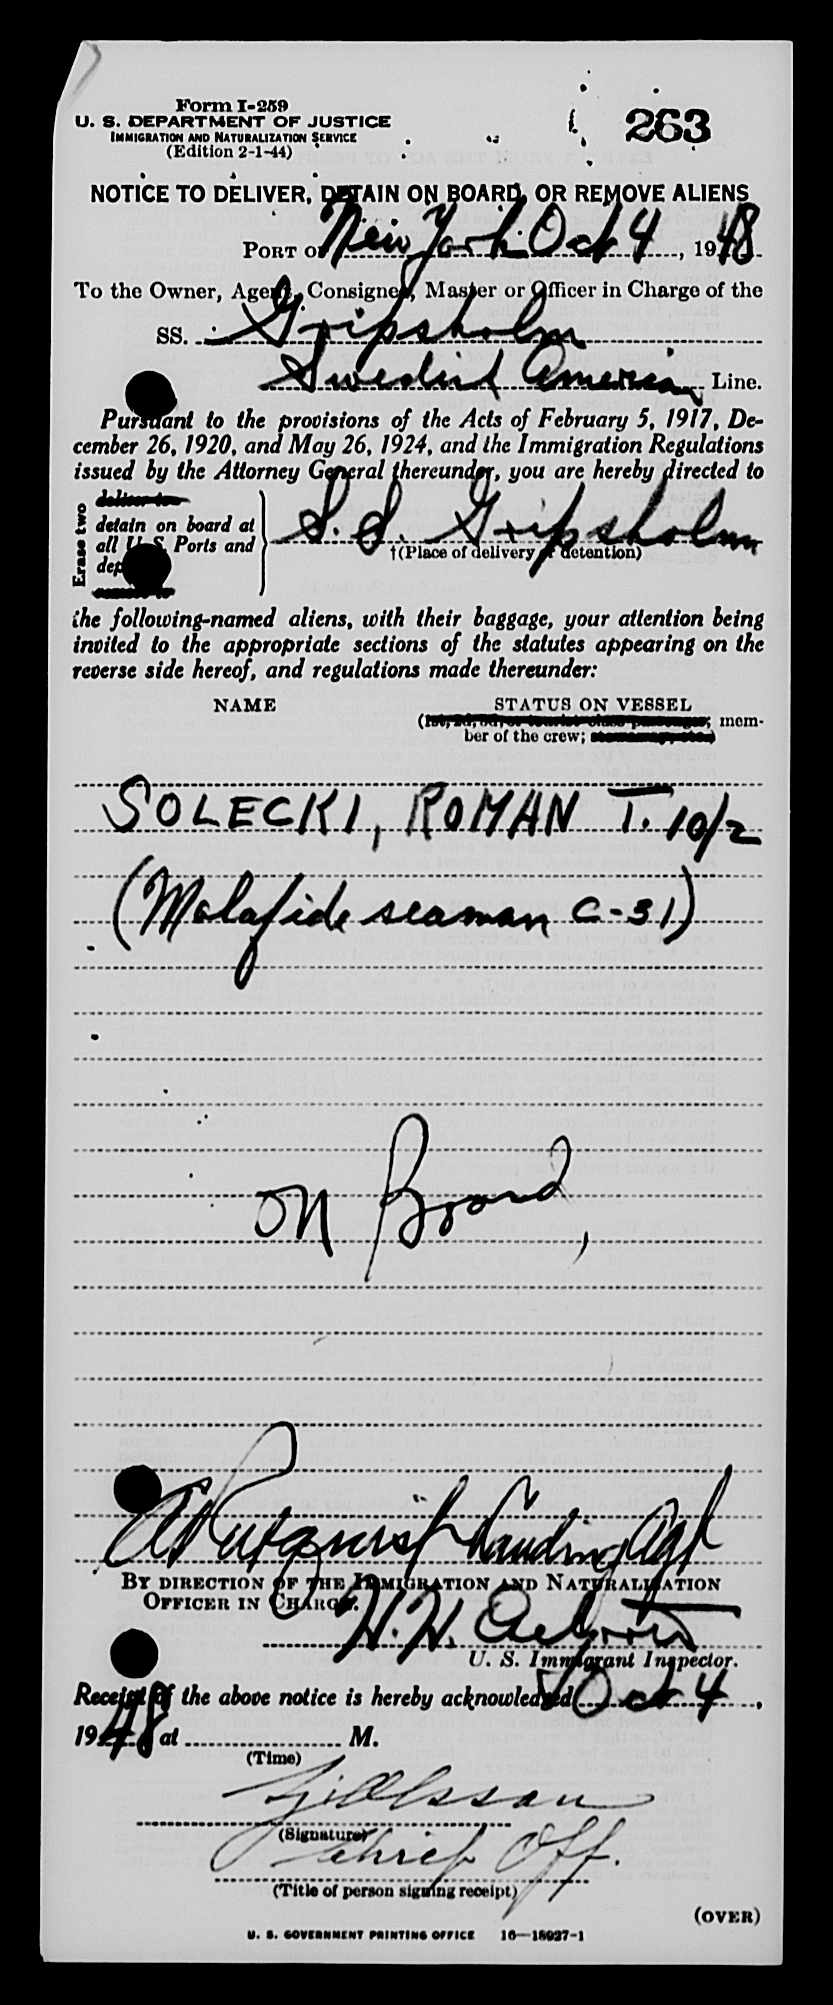 Form I-259
263
U. S. DEPARTMENT OF JUSTICE
IMMIGRATION AND NATURALIZATION SERVICE
(Edition 2-1-44)
NOTICE TO DELIVER, DETAIN ON BOARD, OR REMOVE ALIENS
PORT OF New York Oct 4, 1948
To the Owner, Agent, Consignee, Master or Officer in Charge of the
SS. Gripsholm
Swedish American Line.
Pursuant to the provisions of the Acts of February 5, 1917, De-
cember 26, 1920, and May 26, 1924, and the Immigration Regulations
issued by the Attorney General thereunder, you are hereby directed to
Erase two
deliver to
detain on board at
all U. S. Ports and
S. S. Gripsholm
†(Place of delivery or detention)
dep
remove to
the following-named aliens, with their baggage, your attention being
invited to the appropriate sections of the statutes appearing on the
reverse side hereof, and regulations made thereunder:
NAME STATUS ON VESSEL
(1st, 2d, 3d, or tourist class passenger; mem-
ber of the crew; stowaway, etc.)
SOLECKI, ROMAN T. 10/2
(Malafide seaman C-31)
on Board,
Landing Agt
BY DIRECTION OF THE IMMIGRATION AND NATURALIZATION
OFFICER IN CHARGE.
H. H.
U. S. Immigrant Inspector.
Receipt of the above notice is hereby acknowledged Oct 4,
1948 at M.
(Time)
Olsson
(Signature)
Chief Off.
(Title of person signing receipt)
(OVER)
U. S. GOVERNMENT PRINTING OFFICE 16—18027-1